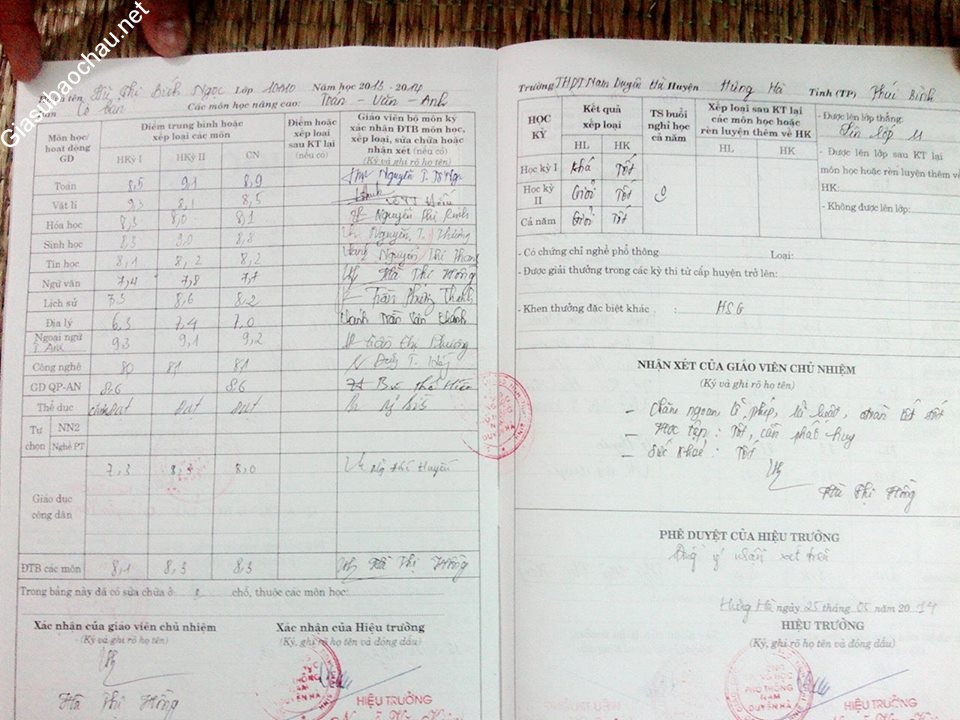 Giasubaochau.net
Họ và tên Hà Thị Bích Ngọc Lớp 10A10 Năm học 2013 - 2014
Ban Cơ bản Các môn học nâng cao: Toán - Văn - Anh
Môn học/ hoạt động GD
Điểm trung bình hoặc xếp loại các môn
HKỳ I HKỳ II CN
Điểm hoặc xếp loại sau KT lại (nếu có)
Giáo viên bộ môn ký xác nhận ĐTB môn học, xếp loại, sửa chữa hoặc nhận xét (nếu có)
(Ký và ghi rõ họ tên)
Toán 8,5 9,1 8,9 Nguyễn T.
Vật lí 9,3 8,1 8,5
Hóa học 8,3 8,0 8,1 Nguyễn Thị
Sinh học 8,3 9,0 8,8 Nguyễn T.
Tin học 8,1 8,2 8,2 Nguyễn Thị
Ngữ văn 7,4 7,8 7,7 Hà Thị Hồng
Lịch sử 7,5 8,6 8,2 Trần
Địa lý 6,3 7,4 7,0 Trần Văn
Ngoại ngữ T. Anh 9,3 9,1 9,2
Công nghệ 80 81 81
GD QP-AN 8.6 8.6
Thể dục Đạt Đạt Đạt
Tự chọn NN2
Nghề PT
Giáo dục công dân 7,3 8,3 8,0 Huyền
ĐTB các môn 8,1 8,3 8,3 Hà Thị Hồng
Trong bảng này đã có sửa chữa ở: chỗ, thuộc các môn học:
Xác nhận của giáo viên chủ nhiệm
(Ký và ghi rõ họ tên)
Hà Thị Hồng
Xác nhận của Hiệu trưởng
(Ký, ghi rõ họ tên và đóng dấu)
HIỆU TRƯỞNG
Trường THPT Nam Duyên Hà Huyện Hưng Hà Tỉnh (TP) Thái Bình
HỌC KỲ
Kết quả xếp loại
HL HK
TS buổi nghỉ học cả năm
Xếp loại sau KT lại các môn học hoặc rèn luyện thêm về HK
HL HK
Học kỳ I Khá Tốt
Học kỳ II Giỏi Tốt
Cả năm Giỏi Tốt
- Được lên lớp thẳng:
Lên lớp 11
- Được lên lớp sau KT lại
môn học hoặc rèn luyện thêm về
HK:
- Không được lên lớp:
- Có chứng chỉ nghề phổ thông: Loại:
- Được giải thưởng trong các kỳ thi từ cấp huyện trở lên:
- Khen thưởng đặc biệt khác : HSG
NHẬN XÉT CỦA GIÁO VIÊN CHỦ NHIỆM
(Ký và ghi rõ họ tên)
- Chăm ngoan lễ phép,
- Học tập : Tốt, cần phát huy
- Sức khoẻ : Tốt
Hà Thị Hồng
PHÊ DUYỆT CỦA HIỆU TRƯỞNG
Đồng ý nhận xét trên
Hưng Hà ngày 25 tháng 05 năm 2014
HIỆU TRƯỞNG
(Ký, ghi rõ họ tên và đóng dấu)
TRUNG HỌC PHỔ THÔNG NAM DUYÊN HÀ
HIỆU TRƯỞNG